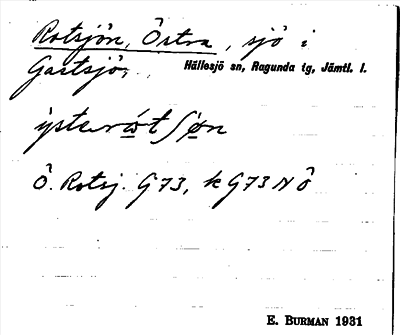 Rotsjön, Östra, sjö i
Gastsjö, Hällesjö sn, Ragunda tg, Jämtl. l.
Ö. Rotsj. G73, k G73 NÖ
E. BURMAN 1931